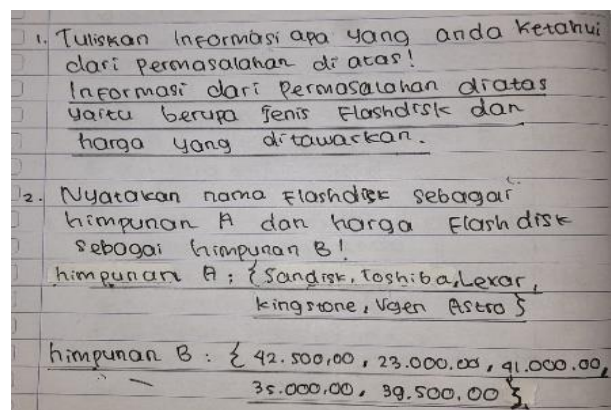 1. Tuliskan informasi apa yang anda ketahui
dari permasalahan di atas!
Informasi dari permasalahan diatas
yaitu berupa jenis Flashdisk dan
harga yang ditawarkan.
2. Nyatakan nama Flashdisk sebagai
himpunan A dan harga Flash disk
sebagai himpunan B!
himpunan A : {Sandisk, Toshiba, Lexar,
kingstone, Vgen Astro}
himpunan B : { 42.500,00, 23.000.00, 41.000.00,
35.000,00, 39.500,00 }